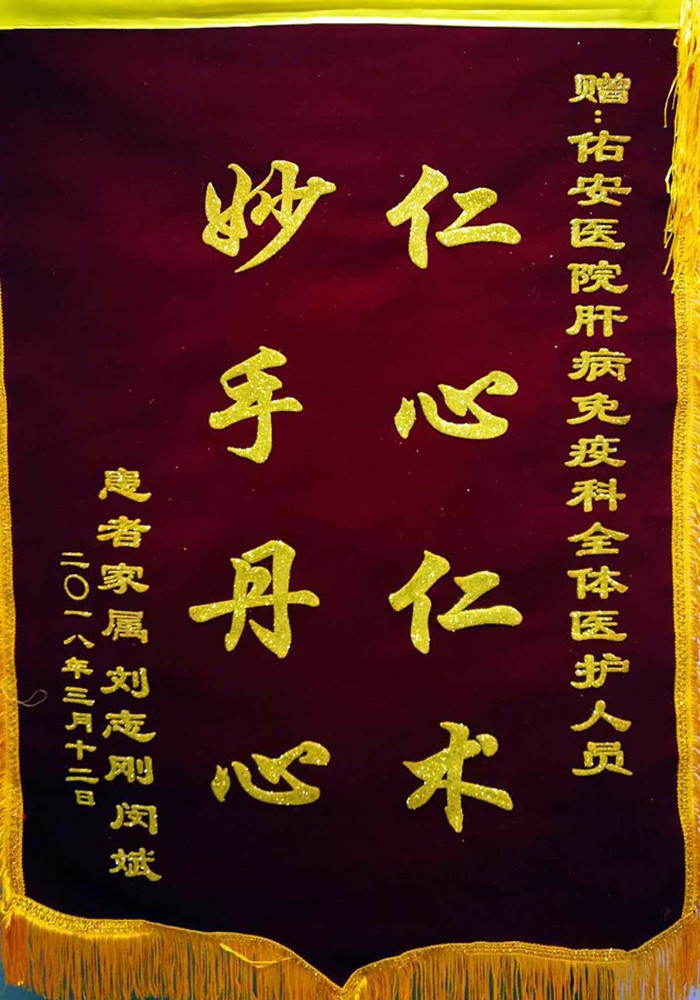 赠:佑安医院肝病免疫科全体医护人员
仁心仁术
妙手丹心
患者家属刘志刚闵斌
二〇一八年三月十二日